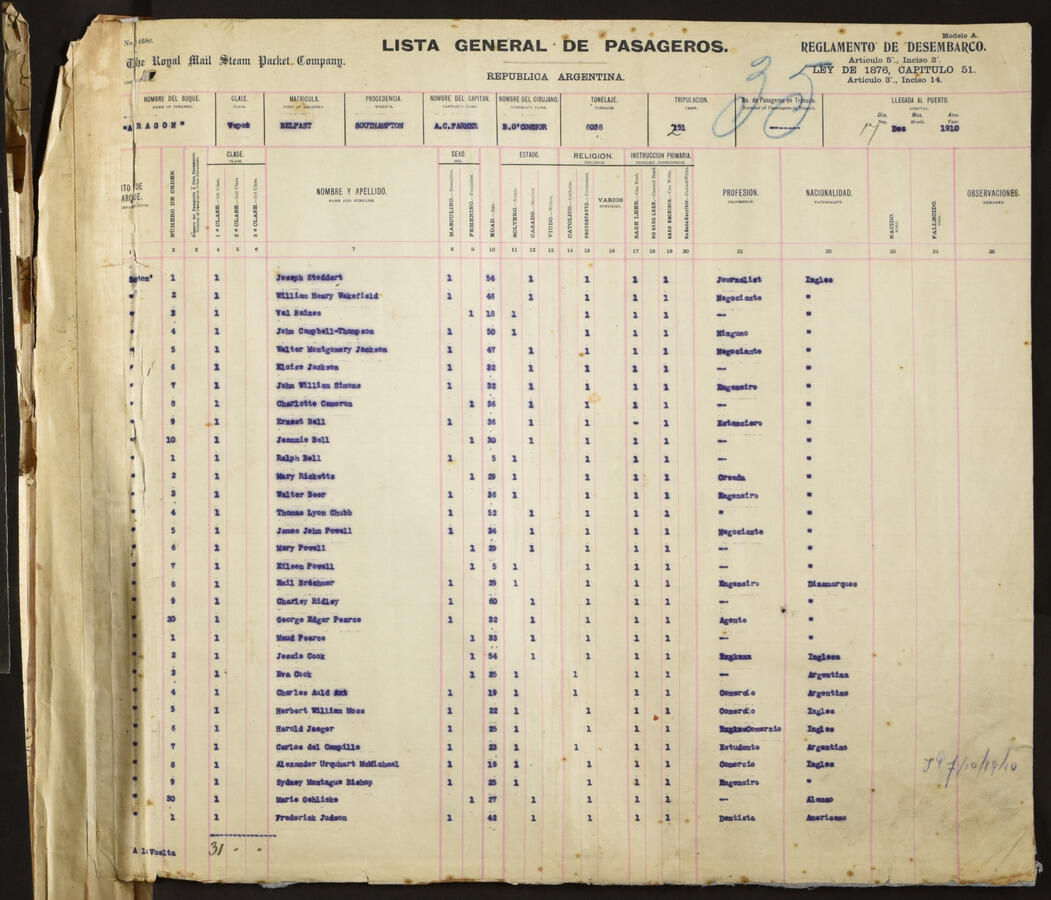 No. 468c.
LISTA GENERAL DE PASAGEROS.
Modelo A.
The Royal Mail Steam Packet Company.
REGLAMENTO DE DESEMBARCO.
Artículo 5°., Inciso 3°.
REPUBLICA ARGENTINA.
LEY DE 1876, CAPITULO 51.
Artículo 3°., Inciso 14.
35
NOMBRE DEL BUQUE. CLASE. MATRICULA. PROCEDENCIA. NOMBRE DEL CAPITAN. NOMBRE DEL CIRUJANO. TONELAJE. TRIPULACION. No. de Pasageros en Transito. LLEGADA AL PUERTO.
NAME OF STEAMER. CLASS. PORT OF REGISTRY. WHENCE. CAPTAIN'S NAME. SURGEON'S NAME. TONNAGE. CREW. Number of Passengers in Transit. ARRIVAL.
Dia. Mes. Ano.
Day. Month. Year.
"ARAGON" Vapor BELFAST SOUTHAMPTON A.C.FARMER B.O'CONNOR 6038 251 17 Dec 1910
CLASE. SEXO. ESTADO. RELIGION. INSTRUCCION PRIMARIA.
CLASS. SEX. RELIGION. PRIMARY INSTRUCTION.
NUMERO DE ORDEN. 1ª CLASE.—1st Class. 2ª CLASE.—2nd Class. 3ª CLASE.—3rd Class. NOMBRE Y APELLIDO. MASCULINO.—Masculine. FEMENINO.—Feminine. EDAD.—Age. SOLTERO.—Single. CASADO.—Married. VIUDO.—Widow. CATOLICO.—Catholic. PROTESTANTE.—Protestant. VARIOS SABE LEER.—Can Read. NO SABE LEER.—Cannot Read. SABE ESCRIBIR.—Can Write. No Sabe Escribir.—Cannot Write. PROFESION. NACIONALIDAD. NACIDO. FALLECIDO. OBSERVACIONES.
NAME AND SURNAME. SUNDRIES. PROFESSION. NATIONALITY. BORN. DIED. REMARKS.
1 2 3 4 5 6 7 8 9 10 11 12 13 14 15 16 17 18 19 20 21 22 23 24 25
1 1 Joseph Stoddart 1 54 1 1 1 1 Journalist Ingles
" 2 1 William Henry Wakefield 1 46 1 1 1 1 Negociante "
" 3 1 Val Baines 1 18 1 1 1 1 -- "
" 4 1 John Campbell-Thompson 1 50 1 1 1 1 Ninguno "
" 5 1 Walter Montgomery Jackson 1 47 1 1 1 1 Negociante "
" 6 1 Eloise Jackson 1 32 1 1 1 1 -- "
" 7 1 John William Simons 1 32 1 1 1 1 Engeneiro "
" 8 1 Charlotte Cameron 1 36 1 1 1 1 -- "
" 9 1 Ernest Bell 1 36 1 1 - 1 Estanciero "
" 10 1 Jeannie Bell 1 30 1 1 1 1 -- "
" 1 1 Ralph Bell 1 5 1 1 1 1 -- "
" 2 1 Mary Ricketts 1 29 1 1 1 1 Creada "
" 3 1 Walter Beer 1 26 1 1 1 1 Engeneiro "
" 4 1 Thomas Lyon Chubb 1 52 1 1 1 1 " "
" 5 1 James John Powell 1 34 1 1 1 1 Negociante "
" 6 1 Mary Powell 1 29 1 1 1 1 -- "
" 7 1 Eileen Powell 1 5 1 1 1 1 -- "
" 8 1 Emil Bröchner 1 29 1 1 1 1 Engeneiro Dinamarques
" 9 1 Charley Ridley 1 60 1 1 1 1 -- "
" 20 1 George Edgar Pearce 1 32 1 1 1 1 Agente "
" 1 1 Maud Pearce 1 33 1 1 1 1 -- "
" 2 1 Jessie Cook 1 54 1 1 1 1 Inglesa
" 3 1 Eva Cook 1 25 1 1 1 1 -- Argentina
" 4 1 Charles Auld 1 19 1 1 1 1 Comercio Argentino
" 5 1 Herbert William Moss 1 22 1 1 1 1 Comercio Ingles
" 6 1 Harold Jaeger 1 25 1 1 1 1 Comercio Ingles
" 7 1 Carlos del Campillo 1 23 1 1 1 1 Estudente Argentino
" 8 1 Alexander Urquhart McMichael 1 18 1 1 1 1 Comercio Ingles
" 9 1 Sydney Montague Bishop 1 25 1 1 1 1 Engeneiro "
" 30 1 Marie Gehlicke 1 27 1 1 1 1 -- Aleman
" 1 1 Frederick Judson 1 42 1 1 1 1 Dentista Americano
A la Vuelta 31 - -